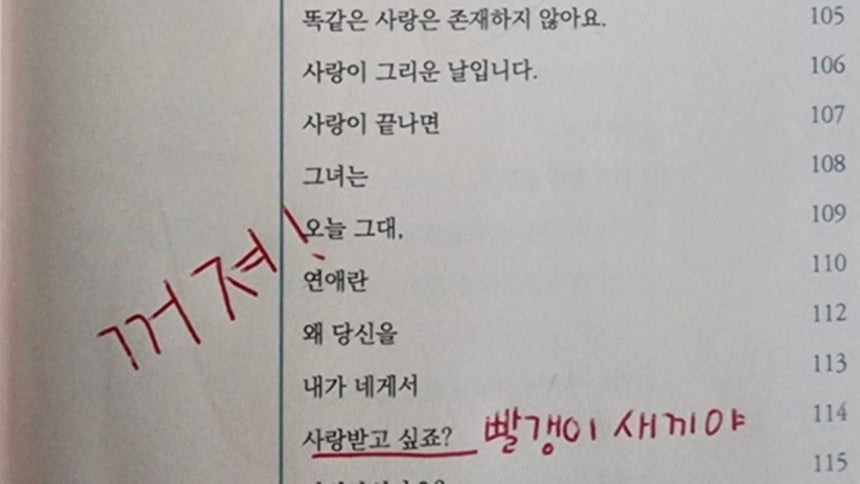 똑같은 사랑은 존재하지 않아요. 105
사랑이 그리운 날입니다. 106
사랑이 끝나면 107
그녀는 108
오늘 그대, 109
꺼져!
연애란 110
왜 당신을 112
내가 네게서 113
사랑받고 싶죠? 빨갱이 새끼야 114
115